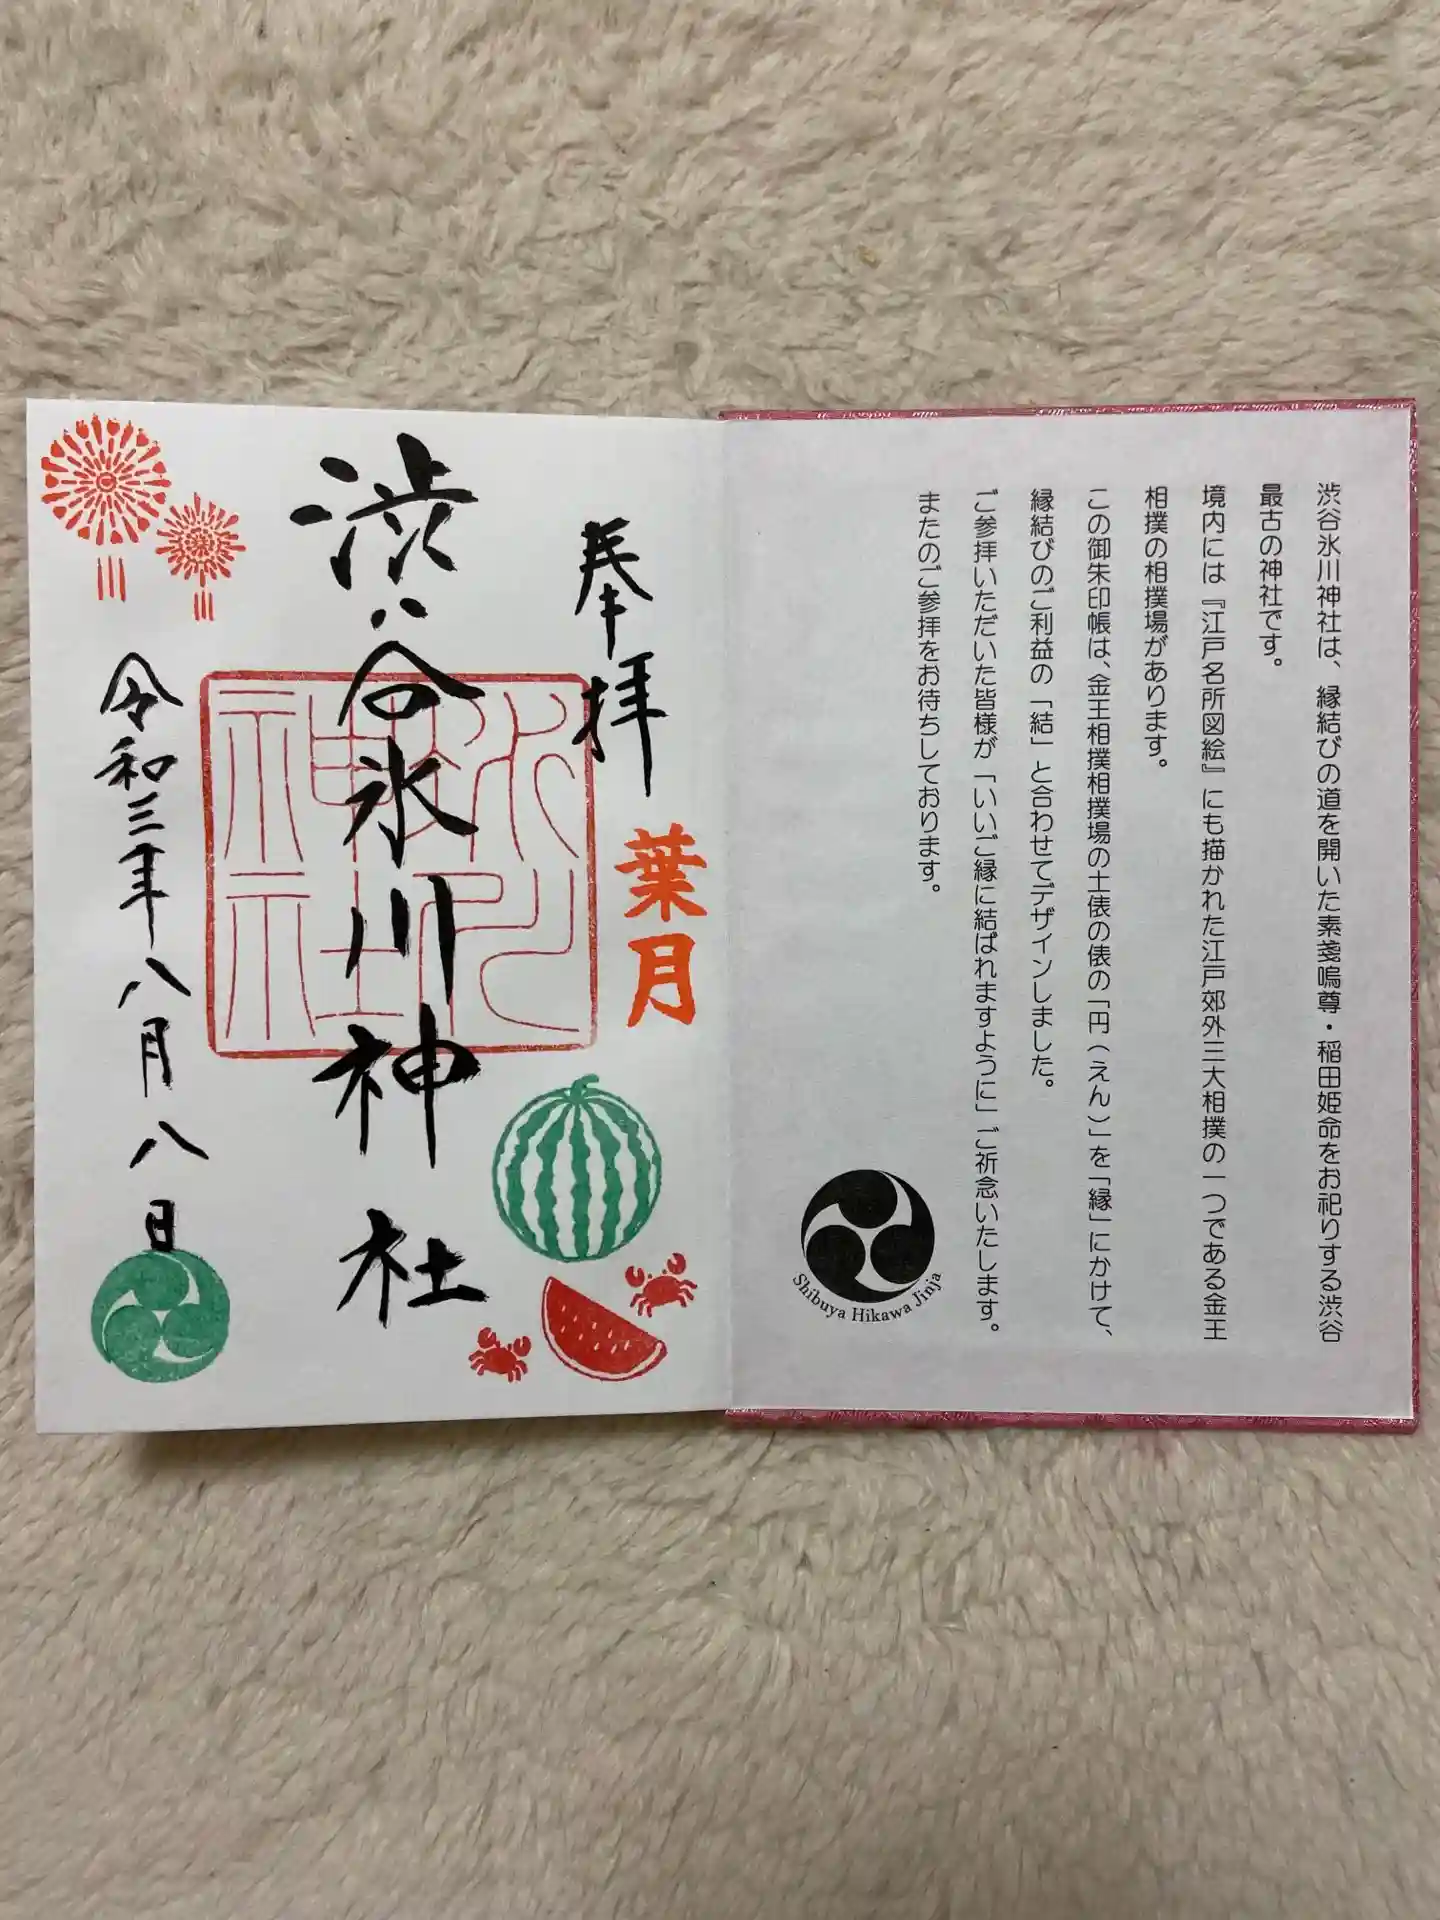 渋谷氷川神社は、縁結びの道を開いた素戔嗚尊・稲田姫命をお祀りする渋谷
最古の神社です。
境内には『江戸名所図絵』にも描かれた江戸郊外三大相撲の一つである金王
相撲の相撲場があります。
この御朱印帳は、金王相撲相撲場の土俵の俵の「円(えん)」を「縁」にかけて、
縁結びのご利益の「結」と合わせてデザインしました。
ご参拝いただいた皆様が「いいご縁に結ばれますように」ご祈念いたします。
またのご参拝をお待ちしております。
Shibuya Hikawa Jinja
奉拝
葉月
渋谷氷川神社
氷川神社
令和三年八月八日